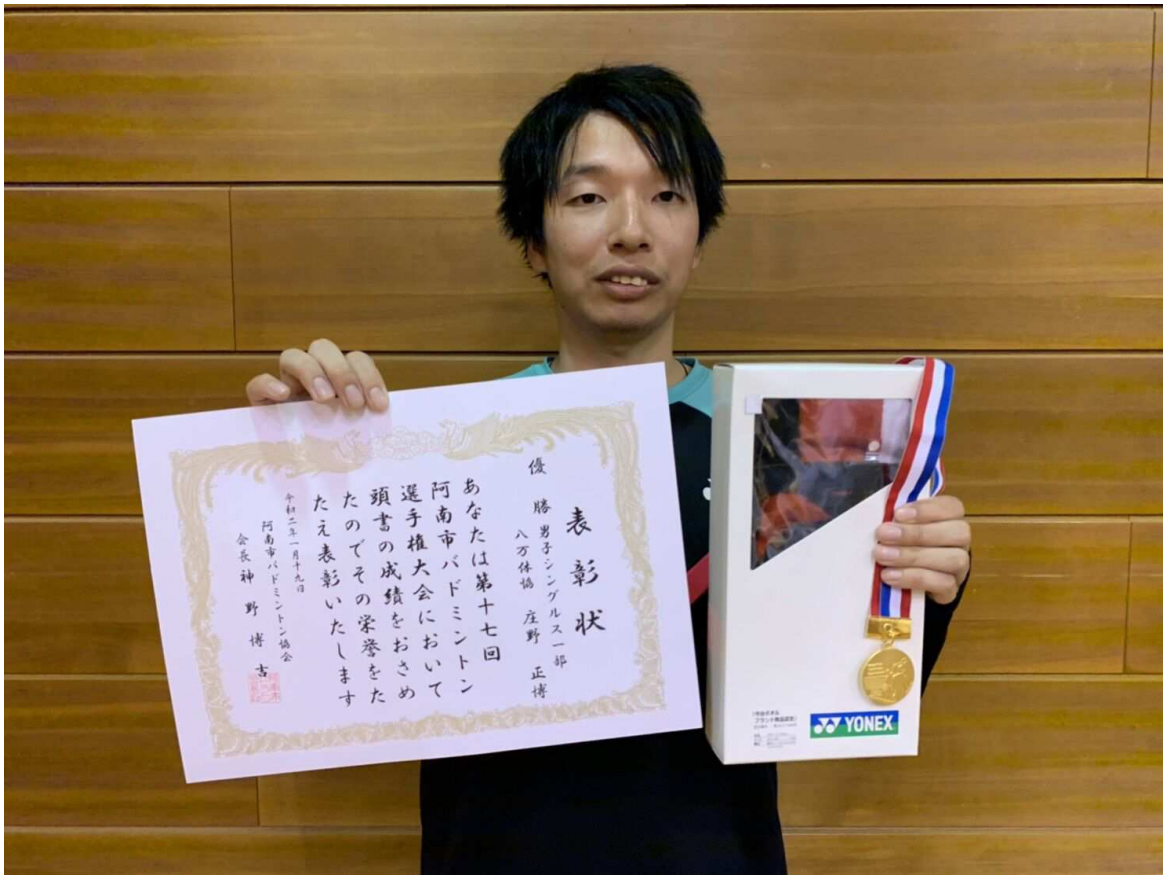 表彰状
優勝 男子シングルス一部
八万体協 庄野 正博
あなたは第十七回
阿南市バドミントン
選手権大会において
頭書の成績をおさめ
たのでその栄誉をた
たえ表彰いたします
令和二年一月十九日
阿南市バドミントン協会
会長 神野 博吉
YONEX